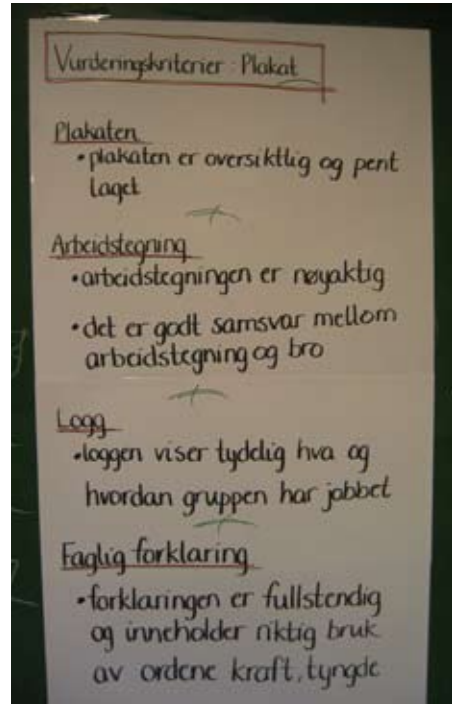 Vurderingskriterier : Plakat
Plakaten
• plakaten er oversiktlig og pent
laget
Arbeidstegning
• arbeidstegningen er nøyaktig
• det er godt samsvar mellom
arbeidstegning og bro
Logg
• loggen viser tydelig hva og
hvordan gruppen har jobbet
Faglig forklaring
• forklaringen er fullstendig
og inneholder riktig bruk
av ordene kraft, tyngde